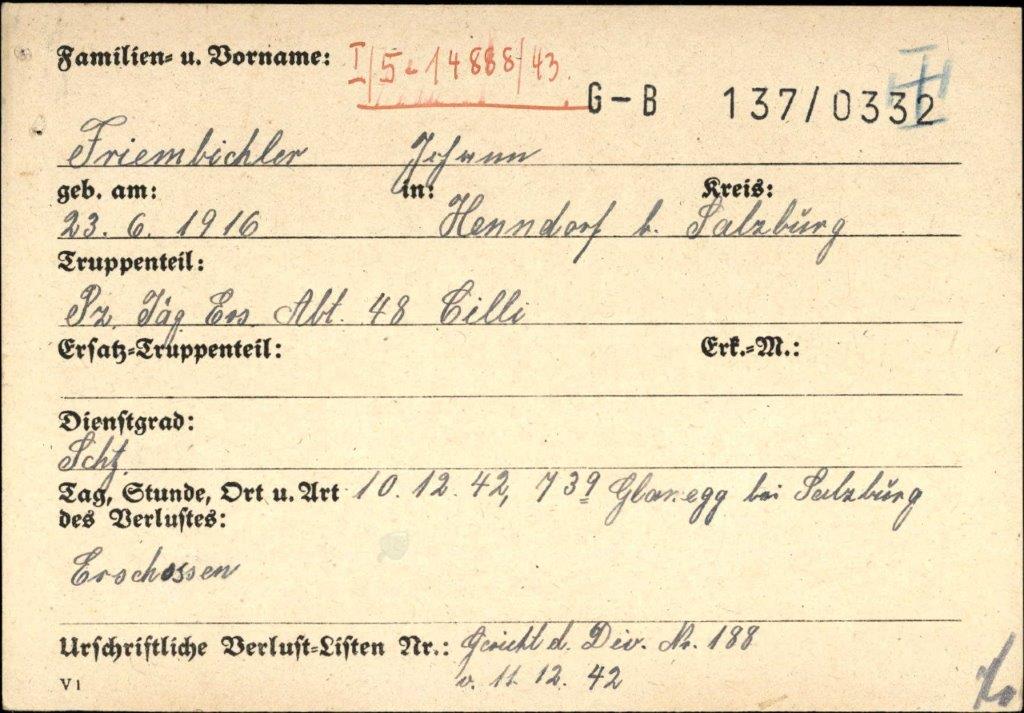 Familien- u. Vorname: I/5-14888/43
G-B 137/0332 III
Friembichler Johann
geb. am: in: Kreis:
23. 6. 1916 Henndorf b. Salzburg
Truppenteil:
Pz. Jäg. Ers. Abt. 48 Cilli
Ersatz-Truppenteil: Erk.-M.:
Dienstgrad:
Schtz.
Tag, Stunde, Ort u. Art 10. 12. 42, 7 39 Glanegg bei Salzburg
des Verlustes:
Erschossen
Urschriftliche Verlust-Listen Nr.: Gericht d. Div. Nr. 188
v. 11. 12. 42
V 1